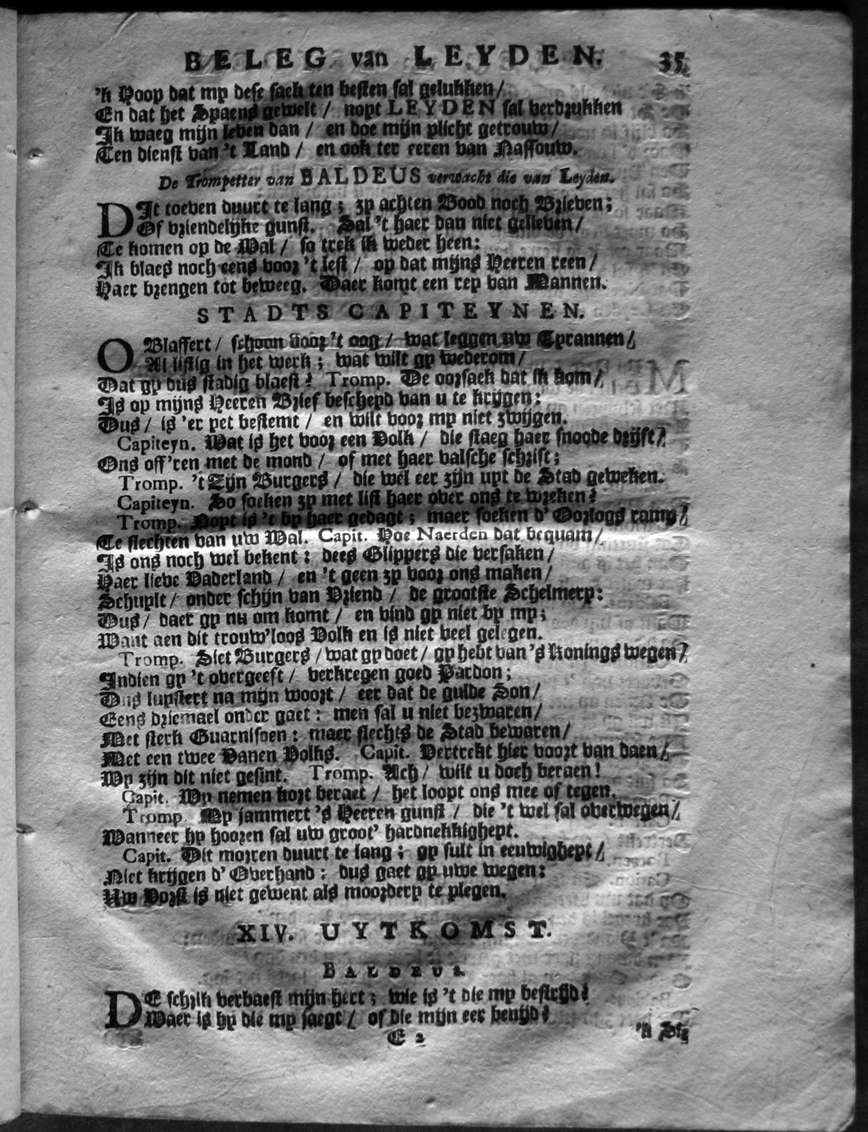 BELEG van LEYDEN. 35
'k Hoop dat my dese sack ten besten sal gelukken /
En dat het Spaens gewelt / noyt LEYDEN sal verdrukken
Ik waeg mijn leven dan / en doe mijn plicht getrouw /
Ten dienst van 't Land / en ook ter eeren van Nassouw.
De Trompetter van BALDEUS verwacht die van Leyden.
DIt toeven duurt te lang; zy achten Bood noch Brieven;
Of vriendelijke gunst. Sal 't haer dan niet gelieven /
Te komen op de Wal / so trek ik weder heen:
Ik blaes noch eens voor 't lest / op dat mijns Heeren reen /
Haer brengen tot beweeg. Daer komt een rey van Mannen.
STADTS CAPITEYNEN.
O Blaffert / schoon voor 't oog / wat leggen uw Tyrannen /
Al listig in het werk; wat wilt gy wederom /
Dat gy dus stadig blaest? Tromp. De oorsaek dat ik kom /
Is op mijns Heeren Brief bescheyd van u te krijgen:
Dus / is 'er yet bestemt / en wilt voor my niet zwijgen.
Capiteyn. Wat is het voor een Volk / die staeg haer snoode drift /
Ons off'ren met de mond / of met haer valsche schrift;
Tromp. 't Zijn Burgers / die wel eer zijn uyt de Stad geweken.
Capiteyn. So soeken zy met list haer over ons te wreken?
Tromp. Noyt is 't by haer gedagt; maer soeken d' Oorlogs ramp /
Te slechten van uw Wal. Capit. Hoe Naerden dat bequam /
Is ons noch wel bekent: dees Glippers die versaken /
Haer lieve Vaderland / en 't geen zy voor ons maken /
Schuylt / onder schijn van Vriend / de grootste Schelmery:
Dus / daer gy nu om komt / en vind gy niet by my;
Want aen dit trouw'loos Volk en is niet veel gelegen.
Tromp. Siet Burgers / wat gy doet / gy hebt van 's Konings wegen /
Indien gy 't overgeeft / verkregen goed Pardon;
Dus luystert na mijn woort / eer dat de gulde Son /
Eens driemael onder gaet: men sal u niet bezwaren /
Met sterk Guarnisoen: maer slechts de Stad bewaren /
Met een twee Vanen Volks. Capit. Vertrekt hier voort van daen /
Wy zijn dit niet gesint. Tromp. Ach / wilt u doch beraen!
Capit. Wy nemen kort beraet / het loopt ons mee of tegen.
Tromp. My jammert 's Heeren gunst / die 't wel sal overwegen /
Wanneer hy hooren sal uw groot' hardnekkigheyt.
Capit. Dit morren duurt te lang; gy sult in eeuwigheyt /
Niet krijgen d' Overhand: dus gaet gy uwe wegen:
Uw Vorst is niet gewent als moordery te plegen.
XIV. UYTKOMST.
BALDEUS.
DE schrik verbaest mijn hert; wie is 't die my bestrijd?
Waer is hy die my jaegt / of die mijn eer benijd?
E 2